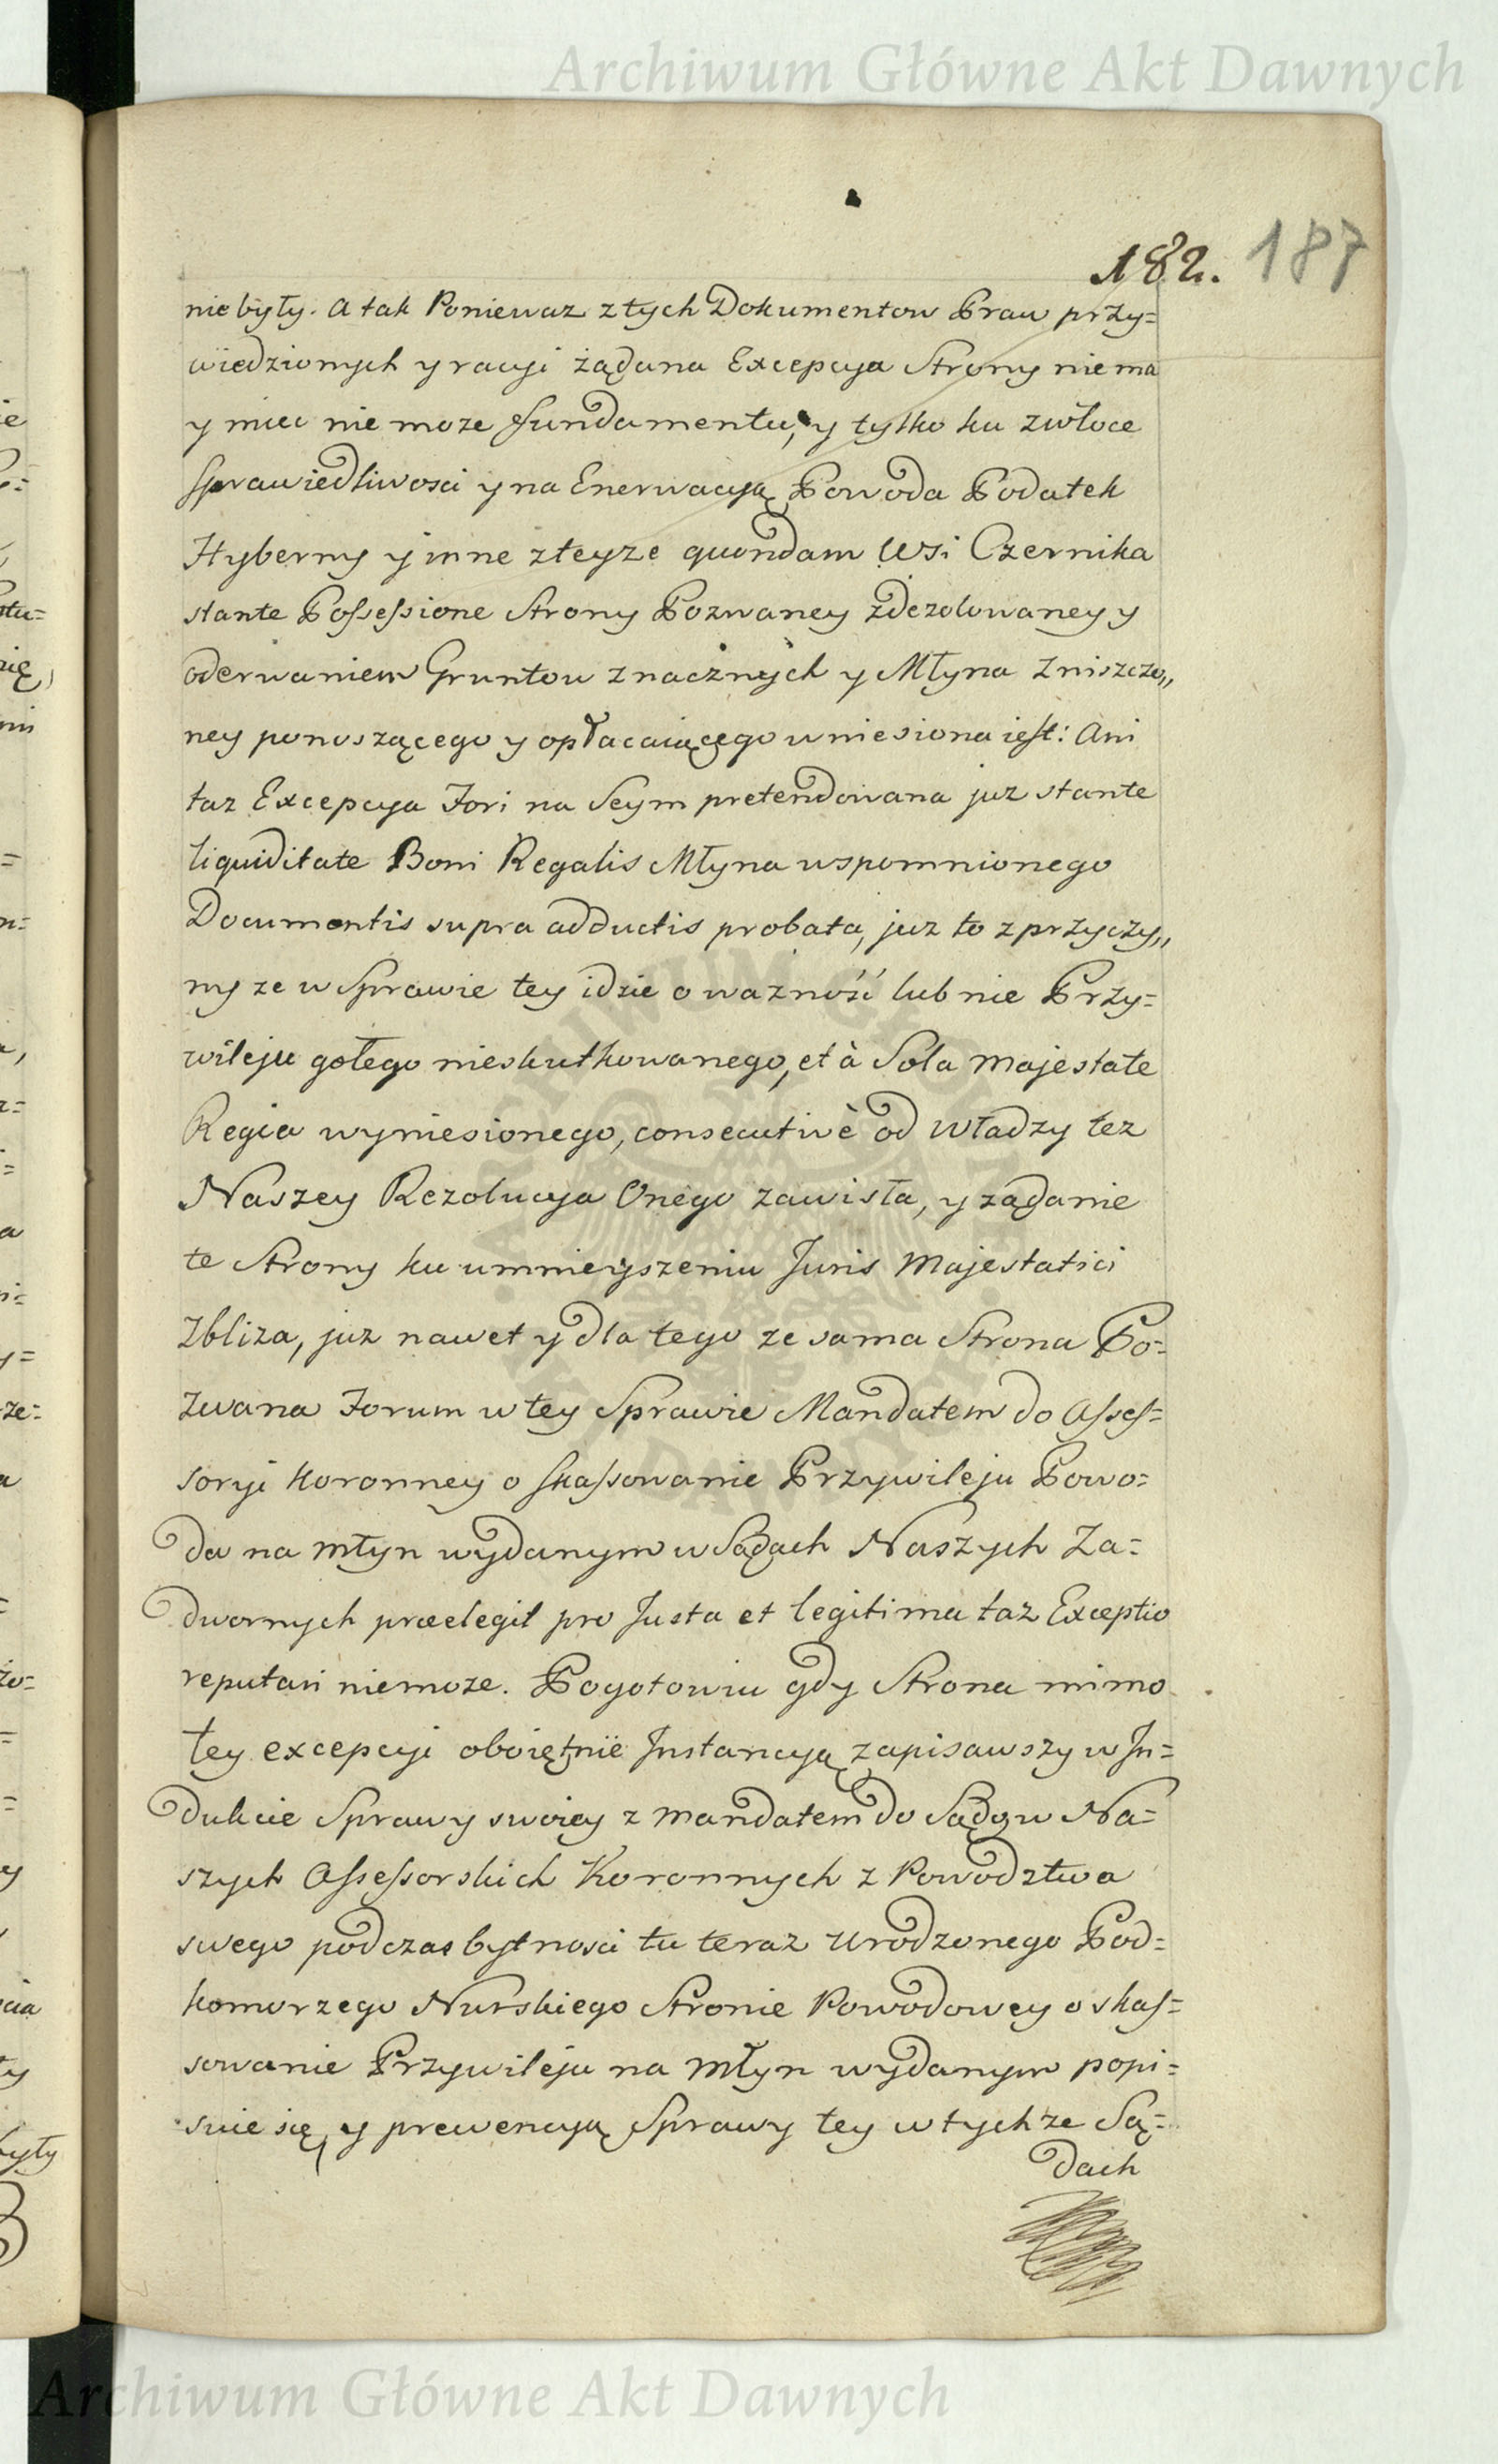 Archiwum Główne Akt Dawnych
182. 187
nie były. A tak Poniewaz z tych Dokumentow Praw przy=
wiedzionych y racyi żądana Excepcya Strony nie ma
y miec nie moze fundamentu, y tylko ku zwłoce
Sprawiedliwosci y na Enerwacyą Powoda Podatek
Hyberny y inne z teyze quondam Wsi Czernika
stante Possessione Strony Pozwaney zdezolowaney y
oderwaniem Gruntow znacznych y Młyna Zniszczo„
ney ponoszącego y opłacaiącego wniesiona iest: Ani
taz Excepcya Fori na Seym pretendowana juz stante
liquiditate Boni Regalis Młyna wspomnionego
Documentis supra adductis probata, juz to z przyczy„
ny ze w Sprawie tey idzie o wazność lub nie Przy=
wileju gołego nieskutkowanego, et à Sola Majestate
Regia wyniesionego, consecutivè od Władzy tez
Naszey Rezolucya Onego zawisła, y ządanie
te Strony ku umnieyszeniu Juris Majestatici
Zbliza, juz nawet y dla tego ze sama Strona Po=
Zwana Forum w tey Sprawie Mandatem do Asses=
soryi Koronney o skassowanie Przywileju Powo=
da na młyn wydanym w Sądach Naszych Za=
dwornych præelegit pro Justa et legitima taz Exceptio
reputari niemoze. Pogotowiu gdy Strona mimo
tey excepcyi oboiętnie Instancyą zapisawszy w In=
dukcie Sprawy swoiey z mandatem do Sądow Na=
szych Assessorskich Koronnych z Powodztwa
swego podczas bytnosci tu teraz Urodzonego Pod=
komorzego Nurskiego Stronie Powodowey o skas=
sowanie Przywileju na młyn wydanym popi=
suie się, y prewencyą Sprawy tey w tychze Są=
dach
Archiwum Główne Akt Dawnych